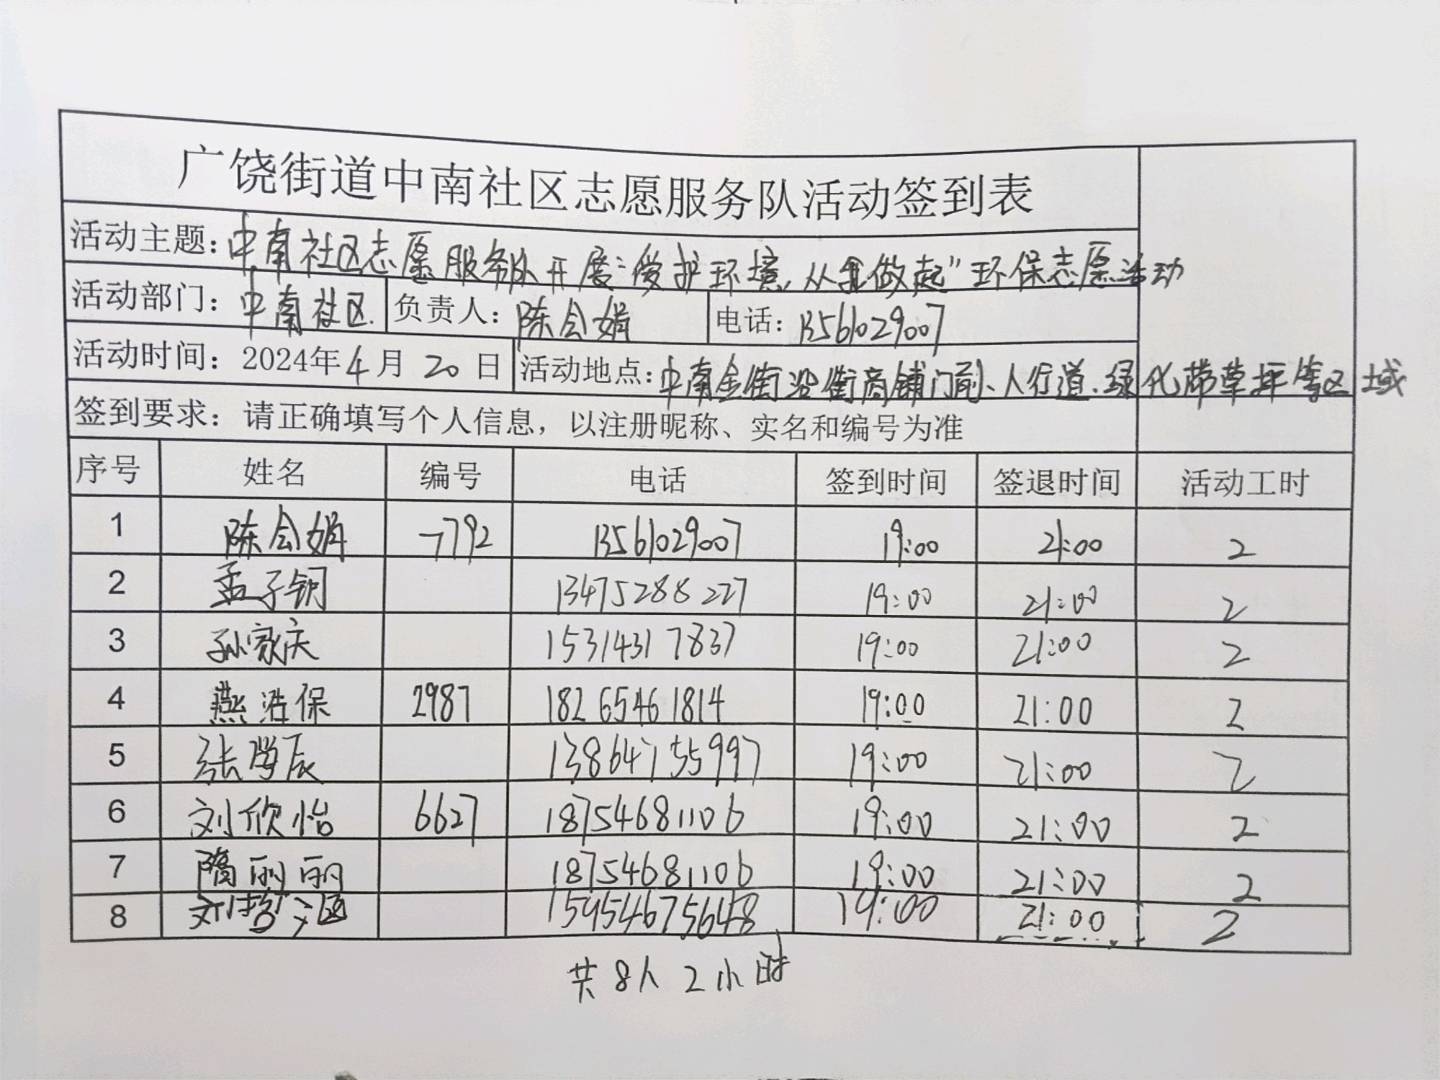 广饶街道中南社区志愿服务队活动签到表
活动主题：中南社区志愿服务队开展“爱护环境，从我做起”环保志愿活动
活动部门：中南社区 负责人：陈会娟 电话：13561029007
活动时间：2024年4月20日 活动地点：中南金街沿街商铺门前、人行道、绿化带草坪等区域
签到要求：请正确填写个人信息，以注册昵称、实名和编号为准
序号 姓名 编号 电话 签到时间 签退时间 活动工时
1 陈会娟 7792 13561029007 19:00 21:00 2
2 孟子钥 13475288227 19:00 21:00 2
3 孙家庆 15314317837 19:00 21:00 2
4 燕浩保 2987 18265461814 19:00 21:00 2
5 张学辰 13864755997 19:00 21:00 2
6 刘欣怡 6627 18754681106 19:00 21:00 2
7 隋丽丽 18754681106 19:00 21:00 2
8 15954675648 19:00 21:00 2
共8人 2小时